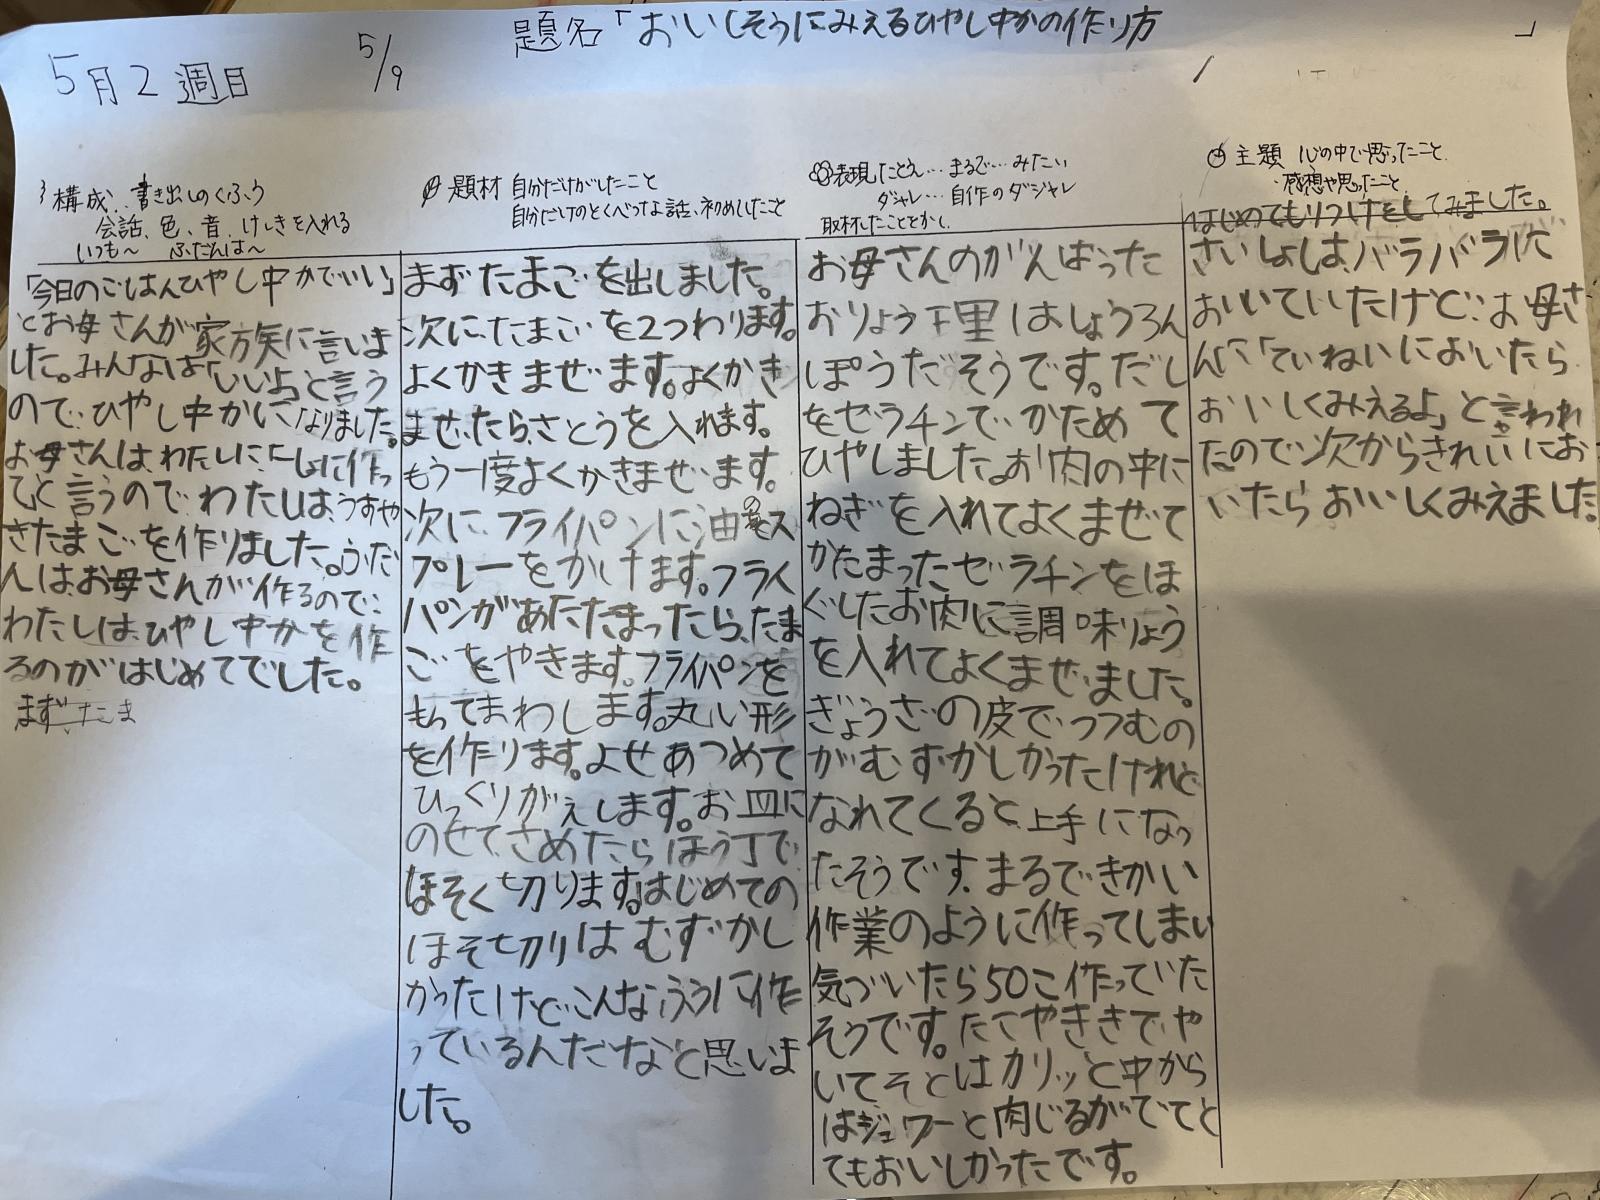 題名「おいしそうにみえるひやし中かの作り方」
5月2週目
5/9
構成 書き出しのくふう
会話、色、音、けしきを入れる
いつも〜 ふだんは〜
「今日のごはんひやし中かでいい」
とお母さんが家族に言いま
した。みんなは「いいよ」と言う
ので、ひやし中かになりました。
お母さんは、わたしに「いっしょに作っ
てと言うので、わたしは、うすや
きたまごを作りました。ふだ
んは、お母さんが作るので、
わたしは、ひやし中かを作
るのがはじめてでした。
まず、たま
題材 自分だけがしたこと
自分だけのとくべつな話、初めしたこと
まずたまごを出しました。
次に、たまごを2つわります。
よくかきまぜます。よくかき
まぜたら、さとうを入れます。
もう一度よくかきまぜます。
次に、フライパンに油のス
プレーをかけます。フライ
パンがあたたまったら、たま
ごをやきます。フライパンを
もってまわします。丸い形
を作ります。よせあつめて
ひっくりがえします。お皿に
のせて、さめたらほう丁で
ほそく切ります。はじめての
ほそ切りはむずかし
かったけど、こんなふうに作
っているんだなと思いま
した。
表現 たとえ…まるで…みたい
ダジャレ…自作のダジャレ
取材したこととかし
お母さんのがんばった
おりょう理はしょうろん
ぽうだそうです。だし
をゼラチンで、かためて
ひやしました。お肉の中に
ねぎを入れてよくまぜて
かたまったゼラチンをほ
ぐしたお肉に調味りょう
を入れてよくまぜました。
ぎょうざの皮でつつむの
がむずかしかったけれど
なれてくると上手になっ
たそうです。まるできかい
作業のように作ってしまい
気づいたら50こ作っていた
そうです。たこやききでや
いてそとはカリッと中から
はジュワーと肉じるがでてと
てもおいしかったです。
主題 心の中で思ったこと
感想や思ったこと
はじめてもりつけをしてみました。
さいしょは、バラバラに
おいていたけど、お母さ
んに「ていねいにおいたら
おいしくみえるよ」と言われ
たので次からきれいにお
いたらおいしくみえました。